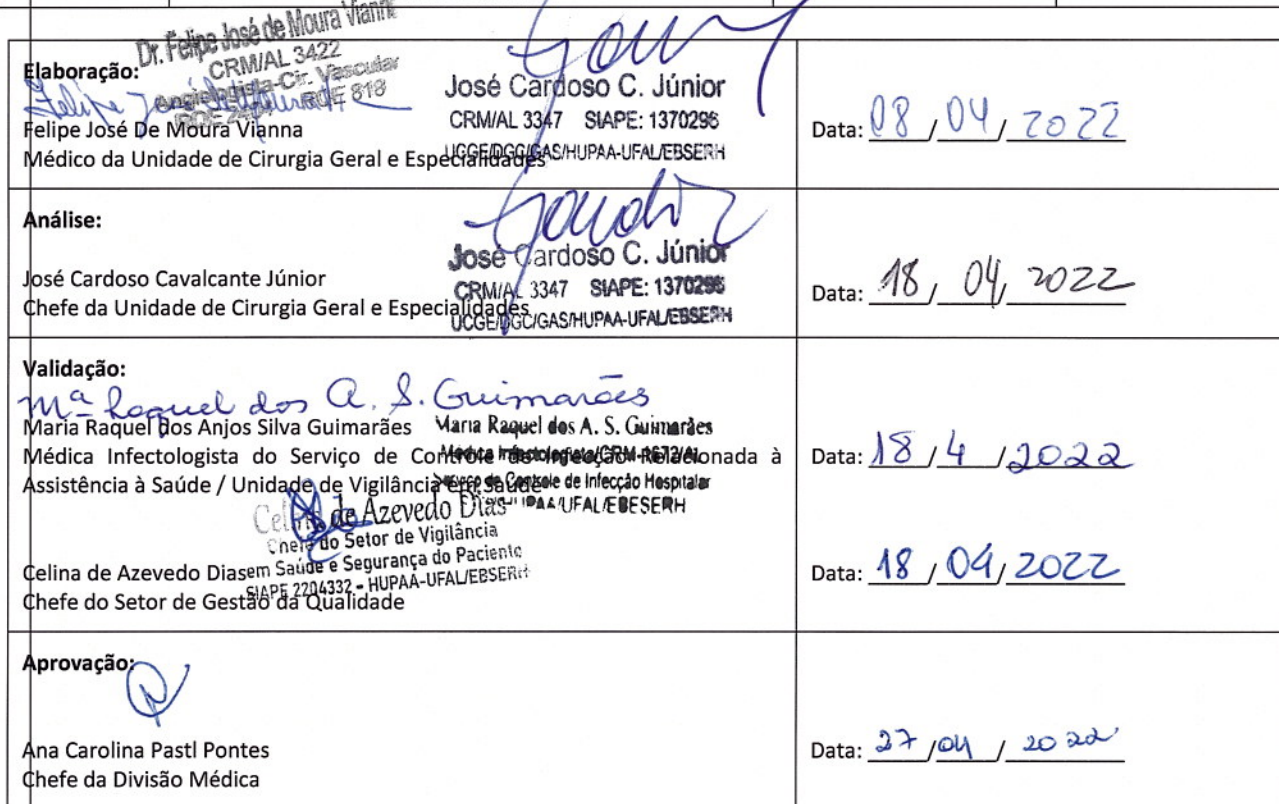 Dr. Felipe José de Moura Vianna
CRM/AL 3422
Angiologista-Cir. Vascular
RQE 818
Elaboração:
Felipe José De Moura Vianna
Médico da Unidade de Cirurgia Geral e Especialidades
José Cardoso C. Júnior
CRM/AL 3347 SIAPE: 1370296
UCGE/DGC/GAS/HUPAA-UFAL/EBSERH
Data: 08/04/2022
Análise:
José Cardoso Cavalcante Júnior
Chefe da Unidade de Cirurgia Geral e Especialidades
José Cardoso C. Júnior
CRM/AL 3347 SIAPE: 1370296
UCGE/DGC/GAS/HUPAA-UFAL/EBSERH
Data: 18/04/2022
Validação:
Mª Raquel dos A. S. Guimarães
Maria Raquel dos Anjos Silva Guimarães
Médica Infectologista do Serviço de Controle de Infecção Relacionada à
Assistência à Saúde / Unidade de Vigilância em Saúde
Maria Raquel dos A. S. Guimarães
Médica Infectologista/CRM-1672/AL
Serviço de Controle de Infecção Hospitalar
HUPAA/UFAL/EBESERH
Data: 18/4/2022
Celina de Azevedo Dias
Chefe do Setor de Vigilância
em Saúde e Segurança do Paciente
SIAPE 2204332 - HUPAA-UFAL/EBSERH
Celina de Azevedo Dias
Chefe do Setor de Gestão da Qualidade
Data: 18/04/2022
Aprovação:
Ana Carolina Pastl Pontes
Chefe da Divisão Médica
Data: 27/04/2022